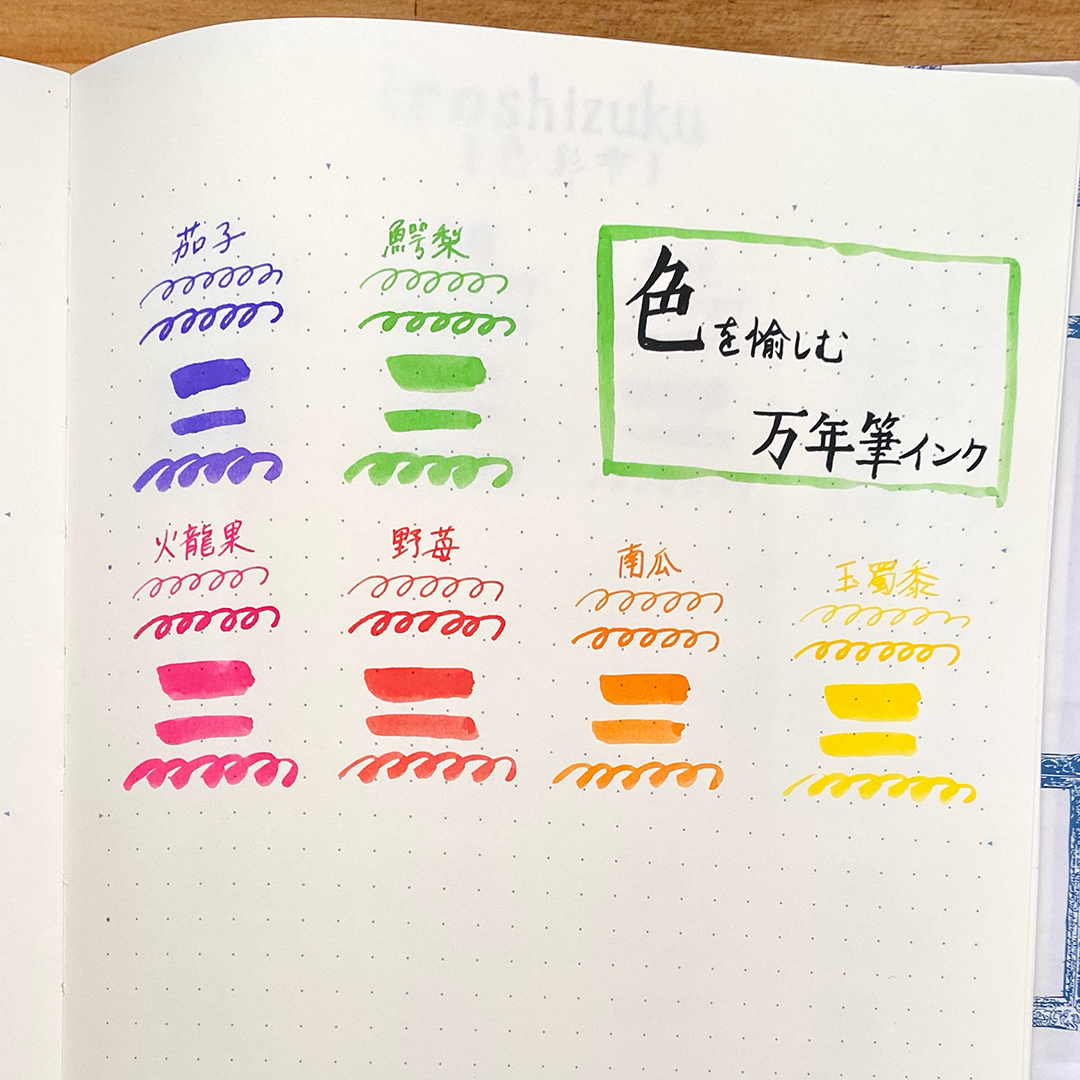 茄子
鰐梨
色を愉しむ
万年筆インク
火龍果
野苺
南瓜
玉蜀黍